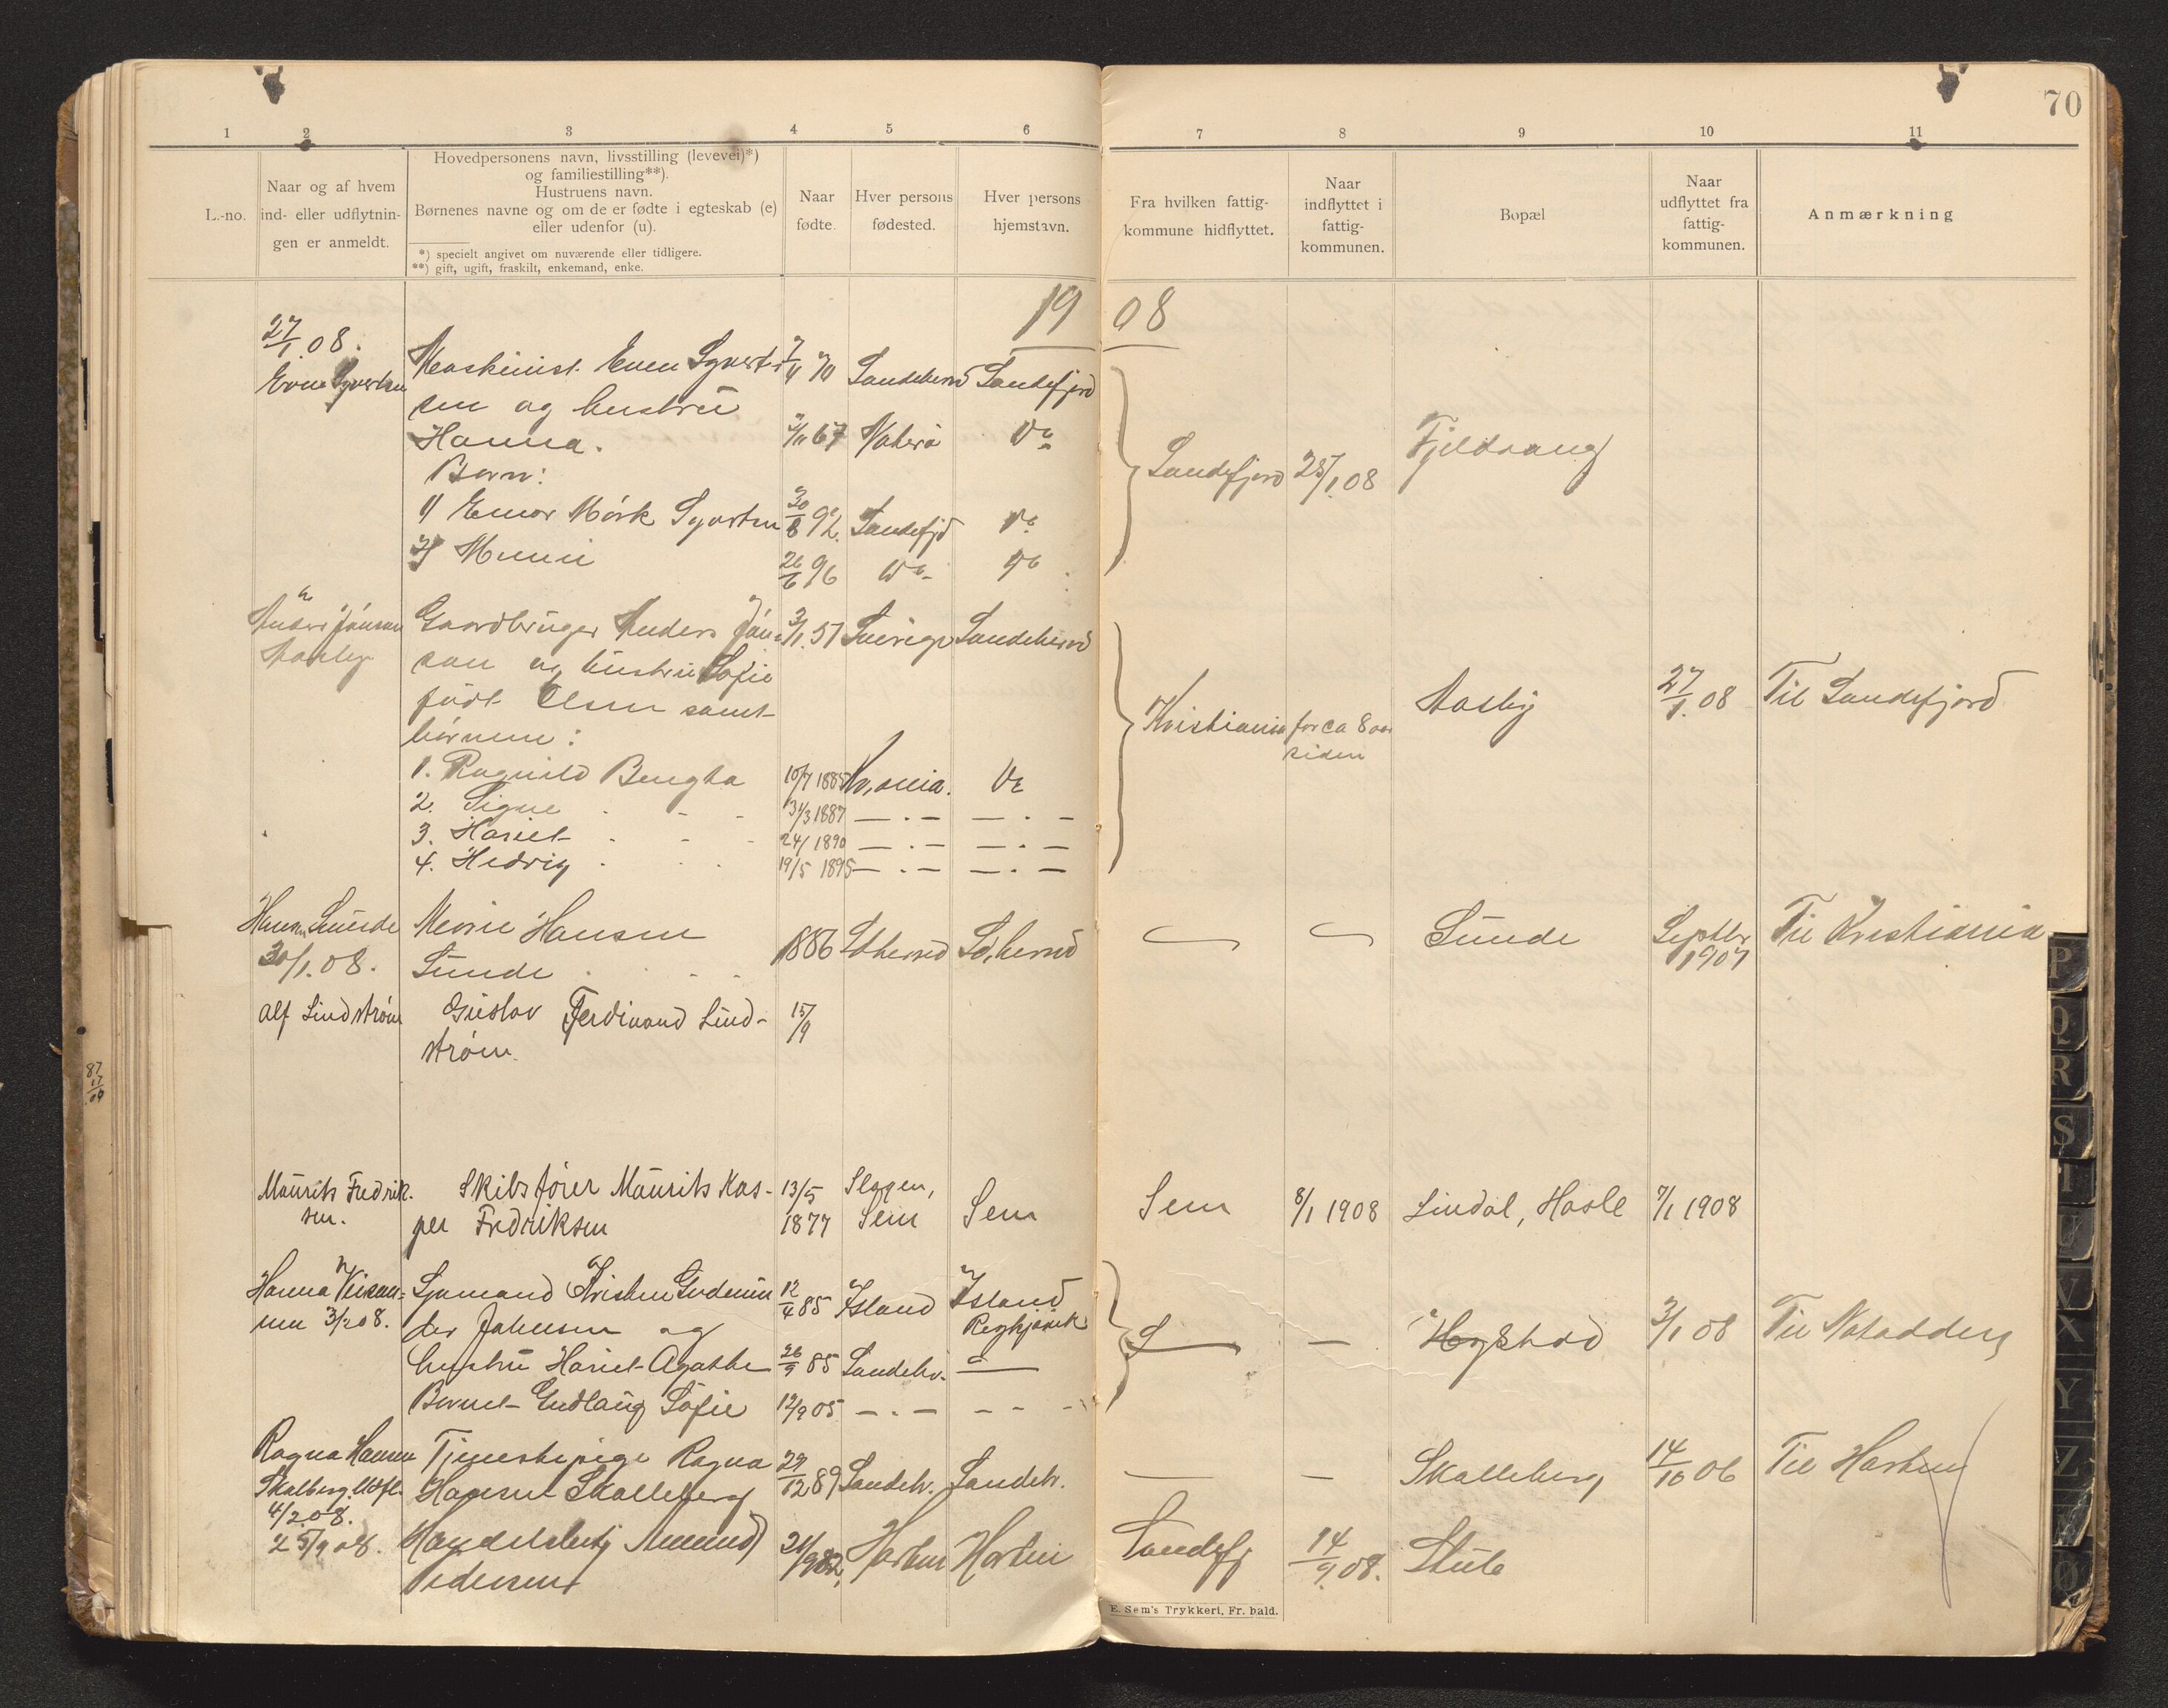 70
1 2 3 4 5 6 7 8 9 10 11
L.-no.
Naar og af hvem
ind- eller udflytnin-
gen er anmeldt.
Hovedpersonens navn, livsstilling (levevei)*)
og familiestilling**).
Hustruens navn.
Børnenes navne og om de er fødte i egteskab (e)
eller udenfor (u).
*) specielt angivet om nuværende eller tidligere.
**) gift, ugift, fraskilt, enkemand, enke.
Naar
fødte.
Hver persons
fødested.
Hver persons
hjemstavn.
Fra hvilken fattig-
kommune hidflyttet.
Naar
indflyttet i
fattig-
kommunen.
Bopæl
Naar
udflyttet fra
fattig-
kommunen.
Anmærkning
19 08
27/1.08.
Even Syvertsen Maskinist Even Syvert- 70 Sandeherred Sandefjord
sen og hustru
Hanna. 67 Nøterø Do
Børn:
Sandefjord 25/1.08 Fjeldvang
1) Einar Mørk Syvertsen 30/8 92. Sandefjd Do
2) 26/6 96 Do Do
Anders Jónson Gaardbruger Anders Jón- 3/1.57 Sverige Sandeherred
Aasby son og hustru Sofie
født Olsen samt
børnene:
Kristiania for ca 8 aar siden Aasby 27/1.08 Til Sandefjord
1. Ragnild Bengta 10/7 1885 Kr,ania. Do
2. Signe 31/3 1887 — . — — . —
3. Hariet 24/ 1890 — . — — . —
4. Hedvig 19/5 1895 — . — — . —
Hansen Sunde Marie Hansen 1886 Sdherred Sd,herred Sunde Septbr 1907 Til Kristiania
30/1.08. Sunde
Alf Lindstrøm Gustav Ferdinand Lind- 15/9
strøm.
87
17
09
Maurits Fredrik- Skibsfører Maurits Kas- 13/5 Slagen, Sem 8/1 1908 Lindal, Hasle 7/1 1908
sen. per Fredriksen 1877 Sem Sem
Hanna Sjømand Kristen 12/4 85 Island Island
3/2 08. Johnsen og Reykjavik
— Hystad 3/1 08 Til Nøtodden
hustru Hariet Agathe 26/9 85 Sandehr. —
Barnet Gudlaug Sofie 12/9 05 — . — — — —
Ragna Hansen Tjenestepige Ragna 29/12 89 Sandeh. Sandeh. — — Skalleberg 14/10 06 Til Horten
Skalberg. Udfl. Hansen Skalleberg
4/2.08.
25/9 08. Handelsbetj Amund 82, Horten Horten Sandefj 14/9.08. Stub
Pedersen
E. Sem's Trykkeri, Fr. hald.
P
Q
R
S
T
U
V
X
Y
Z
Æ
Ø